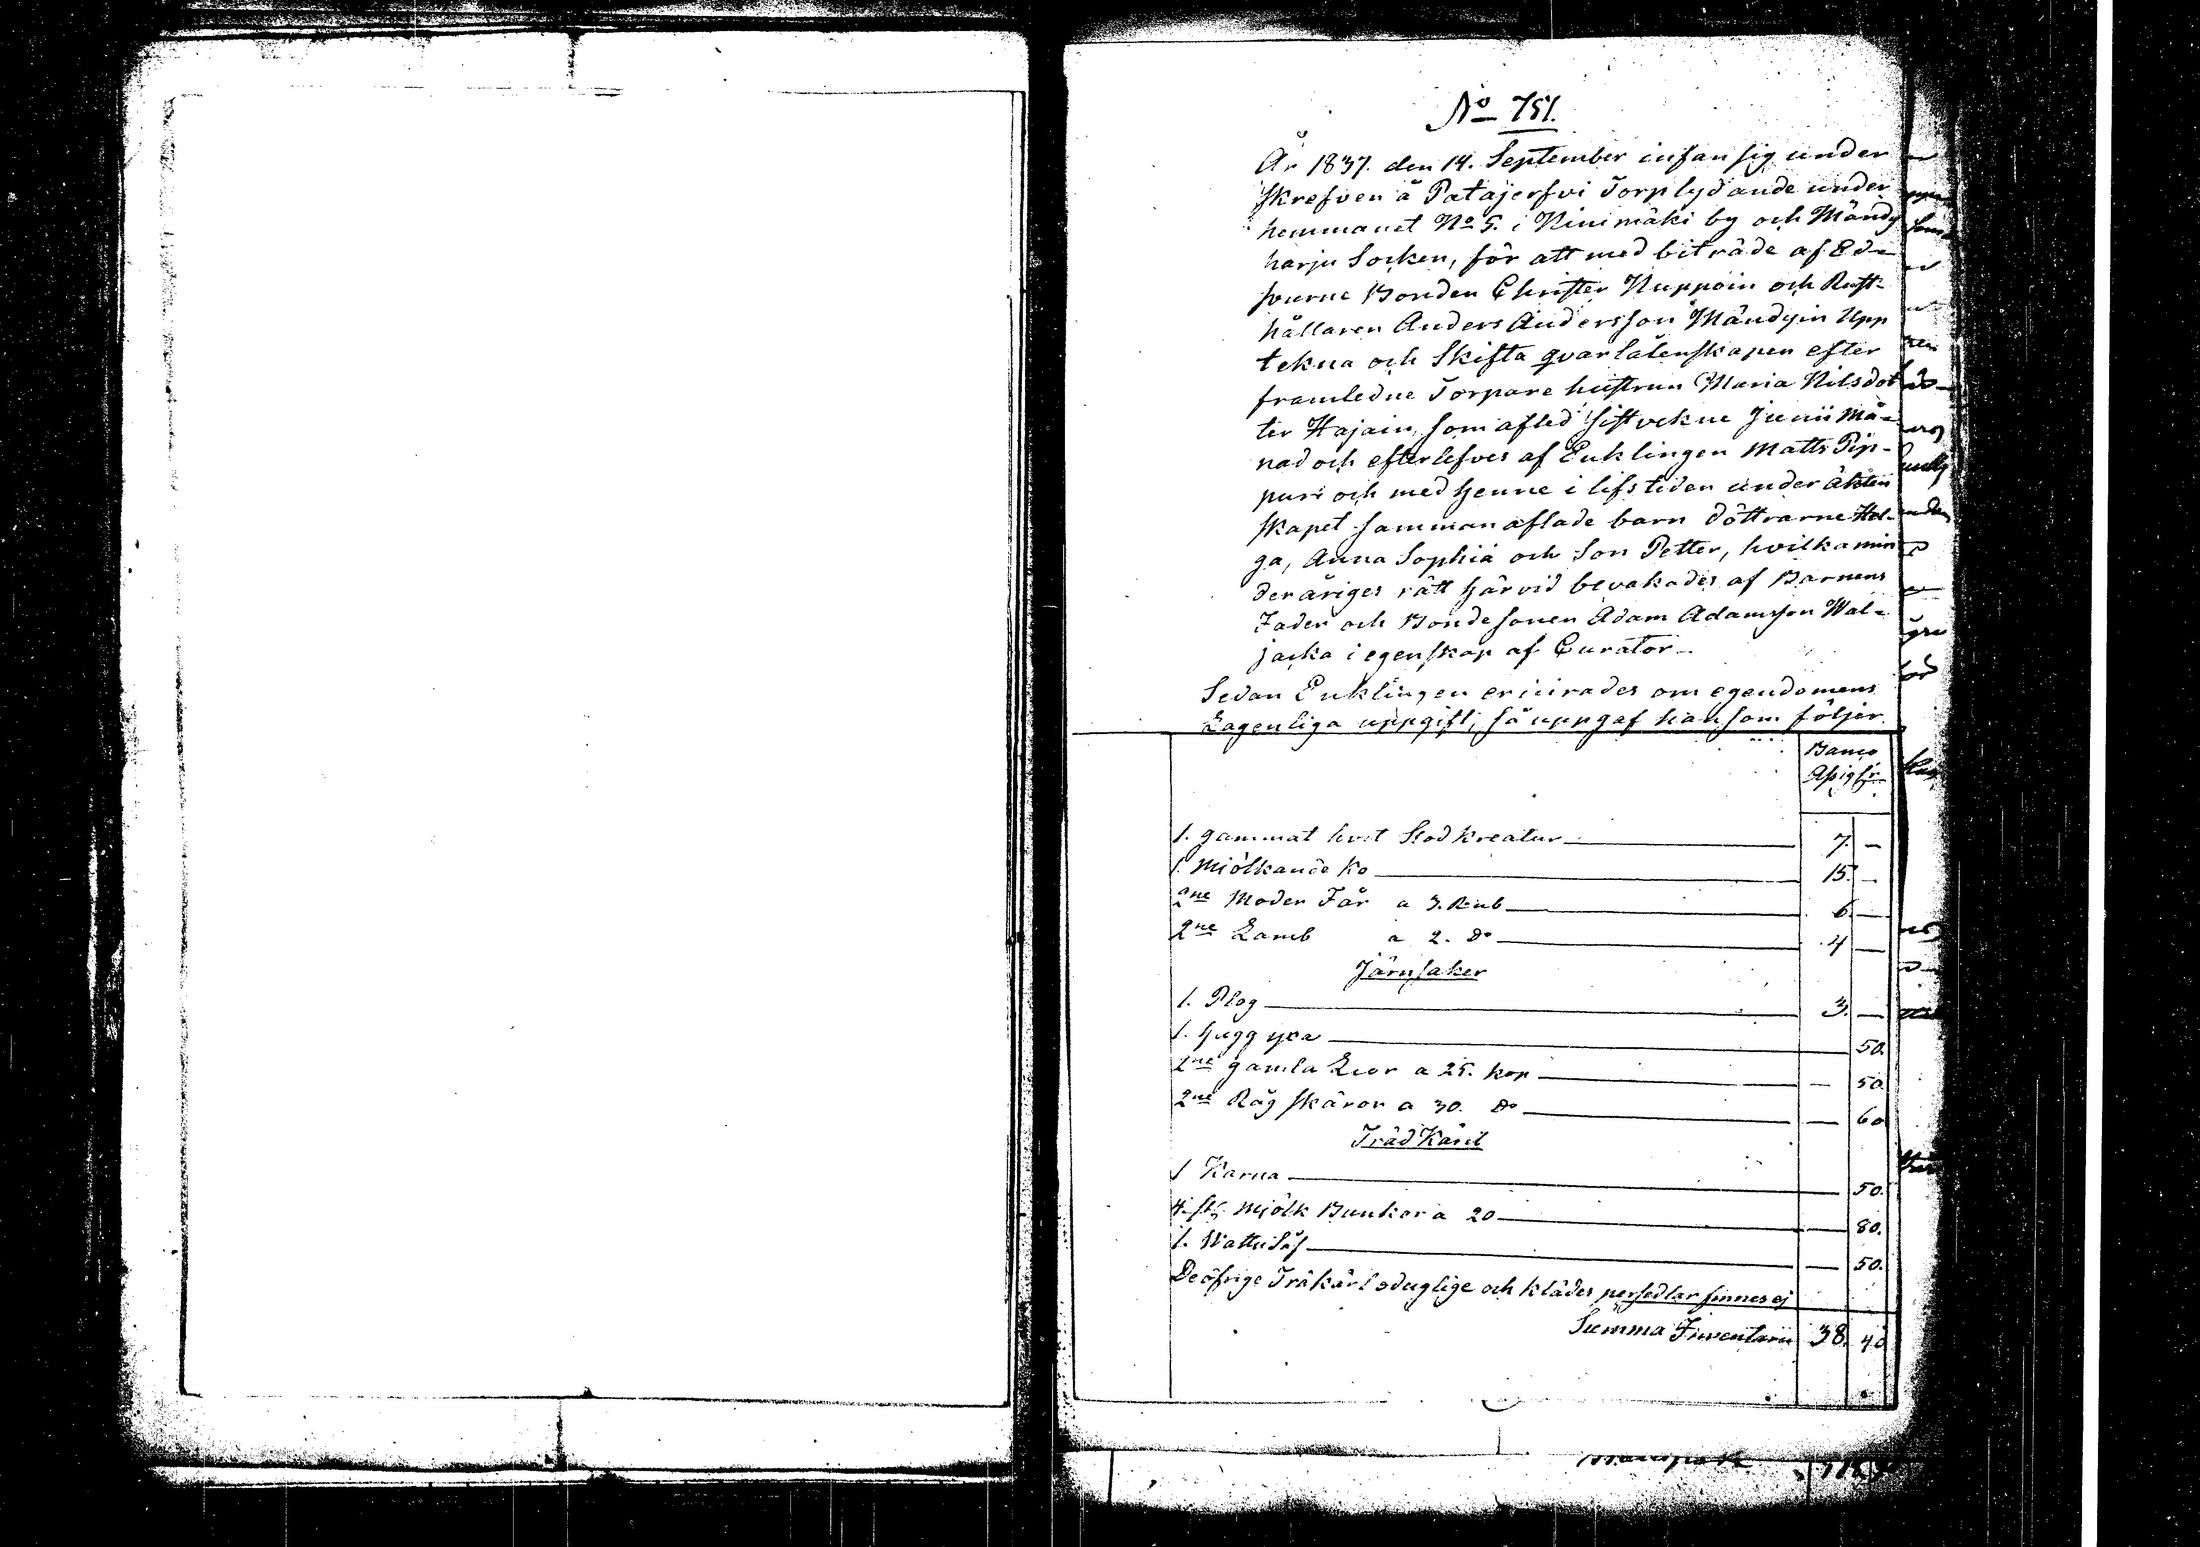 No 751.
År 1837. den 14. September infan sig under
skrefven å Patajerfvi Torp lydande under
hemmanet No 5. i Kinimäki by och Mändy
harju Socken, för att med biträde af Ed-
svurne Bonden Christer Nuppoin och Rust-
hållaren Anders Andersson Mändyin Upp
tekna och Skifta qvarlåtenskapen efter
framledne Torpare hustrun Maria Nilsdot
ter Hajain, som afled sistvekne Junii må-
nad och efterlefves af Enklingen Matts Pip-
puri och med henne i lifstiden under äkten
skapet sammanaflade barn döttrarne Hel-
ga, Anna Sophia och Son Petter, hvilka min
deråriges rätt härvid bevakades af Barnens
Fader och Bondesonen Adam Adamsson Wal-
jacka i egenskap af Curator.
Sedan Enklingen erinrades om egendomens
Lagenliga uppgift, så uppgaf han som följer
Banco
Assigfr
1. gammat hvit Stod kreatur 7. —
1. Miölkande Ko 15. —
2ne Moder Får a 3. Rub 6 —
2ne Lamb a 2. Do 4 —
Järnsaker
1. Plog 3. —
1. hugg yxa 50.
2ne gamla Lior a 25. kop — 50
2ne Råg skäror a 30. Do — 60
Träd Käril
1 Karna 50.
4. st. Miölk Bunkar a 20 80.
1. Wattu Så 50.
De öfrige Träkärl oduglige och kläder persedlar finnes ej
Summa Inventarii 38. 40